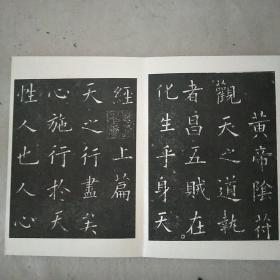 黃帝陰符
觀天之道執
者昌五賊在
化生乎身天
經上篇
天之行盡矣
心施行於天
性人也人心